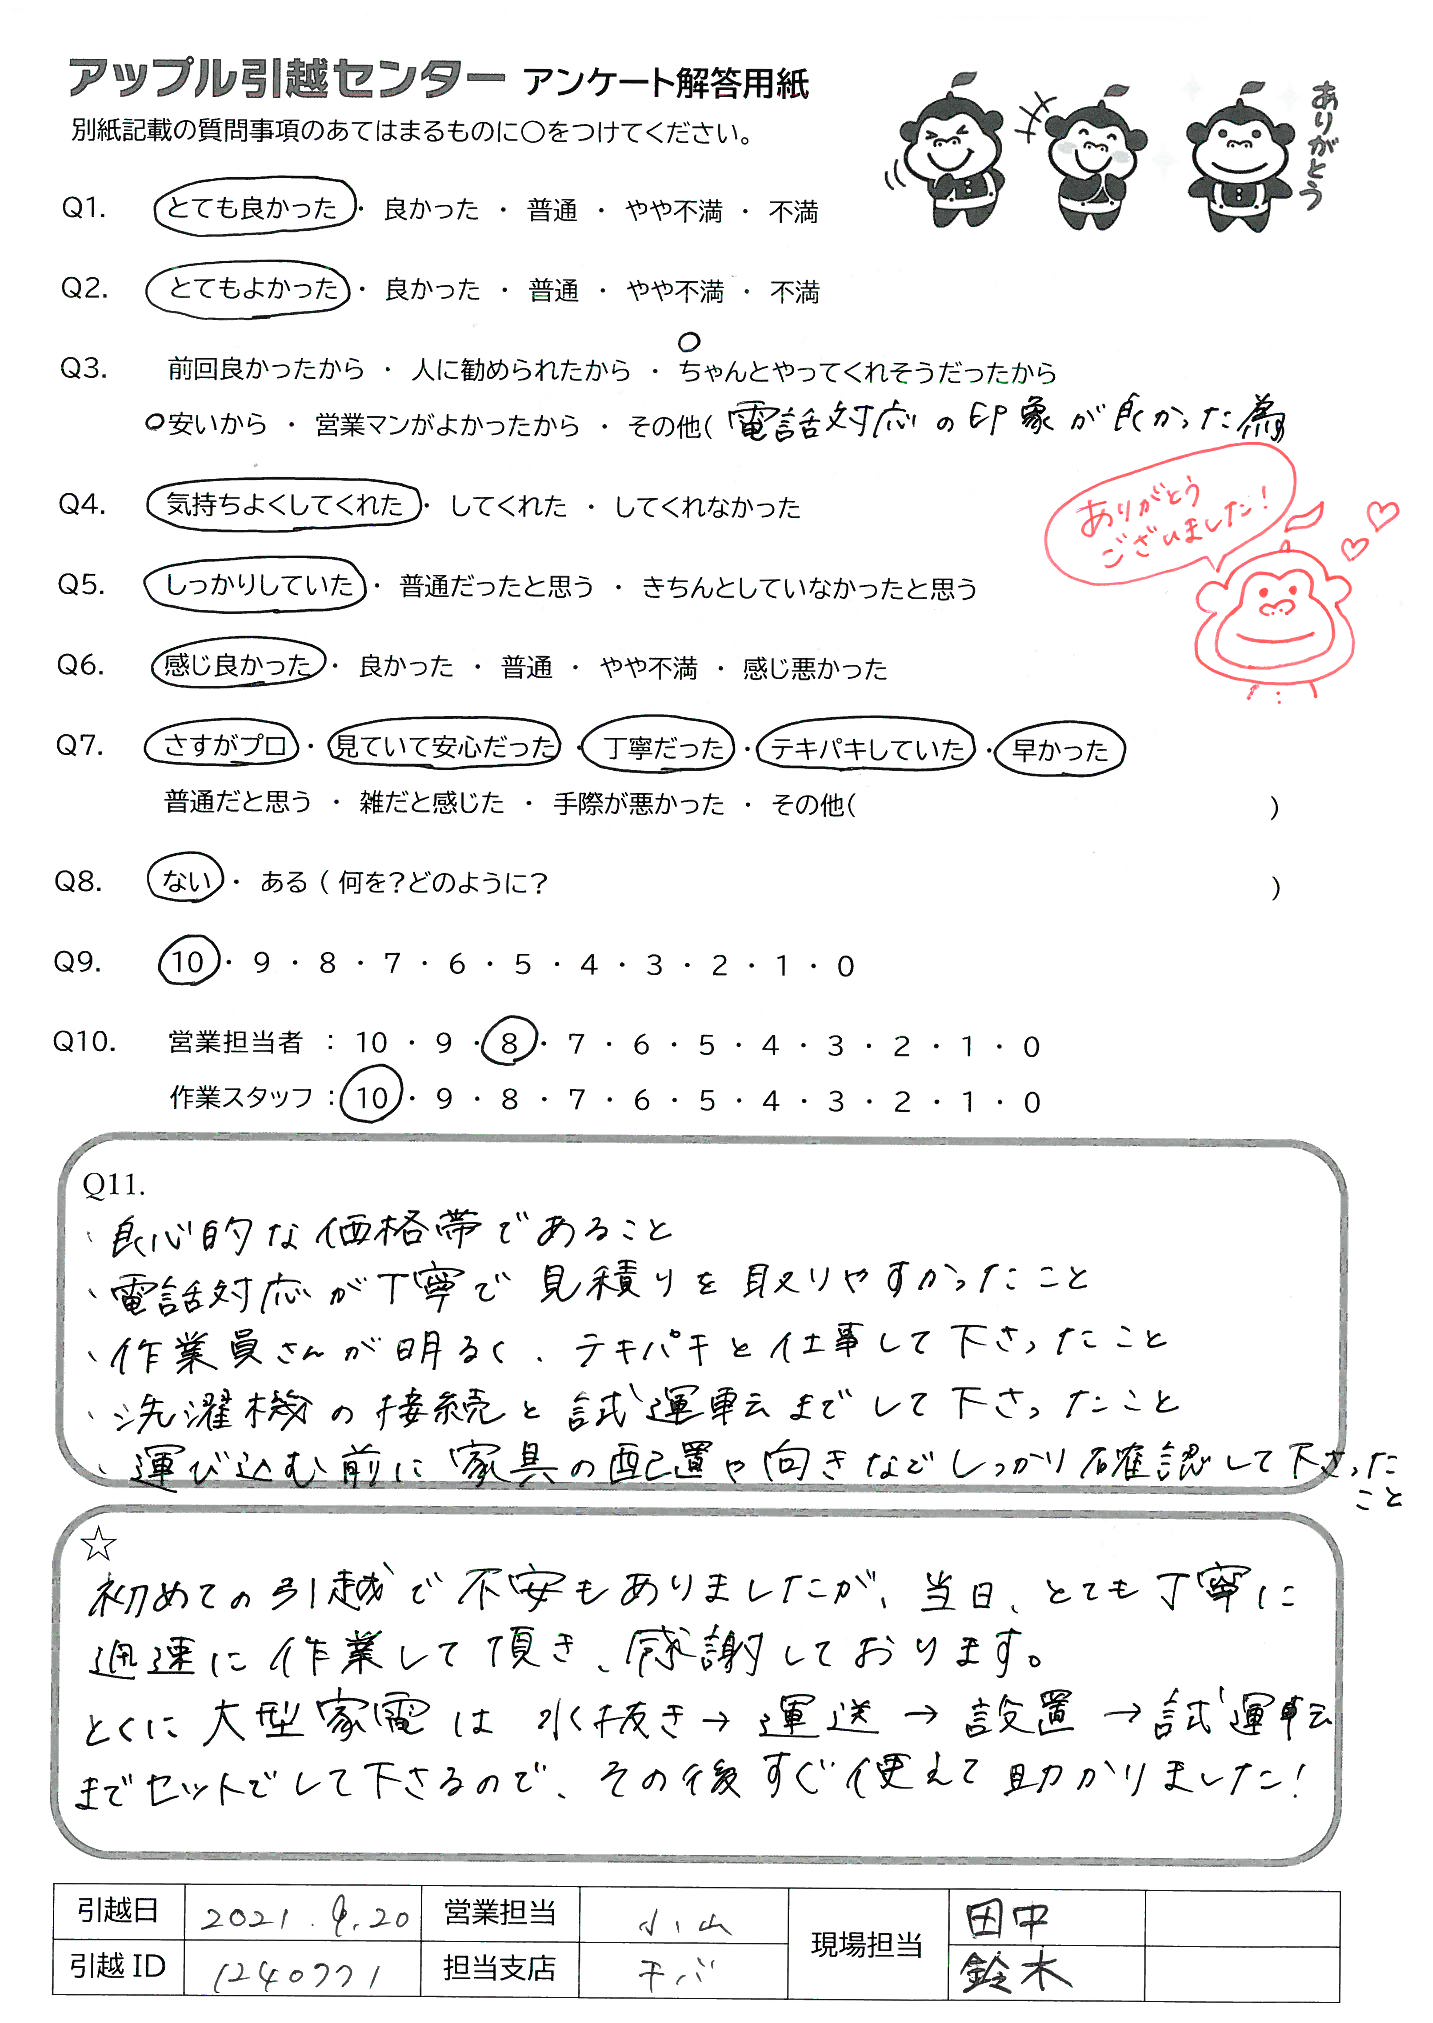 アップル引越センター アンケート解答用紙
別紙記載の質問事項のあてはまるものに○をつけてください。
ありがとう
Q1. とても良かった ・ 良かった ・ 普通 ・ やや不満 ・ 不満
Q2. とてもよかった ・ 良かった ・ 普通 ・ やや不満 ・ 不満
Q3. 前回良かったから ・ 人に勧められたから ・ ちゃんとやってくれそうだったから
安いから ・ 営業マンがよかったから ・ その他( 電話対応の印象が良かった為
ありがとう
ございました!
Q4. 気持ちよくしてくれた ・ してくれた ・ してくれなかった
Q5. しっかりしていた ・ 普通だったと思う ・ きちんとしていなかったと思う
Q6. 感じ良かった ・ 良かった ・ 普通 ・ やや不満 ・ 感じ悪かった
Q7. さすがプロ ・ 見ていて安心だった ・ 丁寧だった ・ テキパキしていた ・ 早かった
普通だと思う ・ 雑だと感じた ・ 手際が悪かった ・ その他( )
Q8. ない ・ ある ( 何を?どのように? )
Q9. 10 ・ 9 ・ 8 ・ 7 ・ 6 ・ 5 ・ 4 ・ 3 ・ 2 ・ 1 ・ 0
Q10. 営業担当者 : 10 ・ 9 ・ 8 ・ 7 ・ 6 ・ 5 ・ 4 ・ 3 ・ 2 ・ 1 ・ 0
作業スタッフ : 10 ・ 9 ・ 8 ・ 7 ・ 6 ・ 5 ・ 4 ・ 3 ・ 2 ・ 1 ・ 0
Q11.
、良心的な価格帯であること
、電話対応が丁寧で見積りを取りやすかったこと
、作業員さんが明るく、テキパキと仕事して下さったこと
、洗濯機の接続と試運転までして下さったこと
、運び込む前に家具の配置や向きなどしっかり確認して下さった
こと
☆
初めての引越で不安もありましたが、当日、とても丁寧に
迅速に作業して頂き、感謝しております。
とくに大型家電は水抜き→運送→設置→試運転
までセットでして下さるので、その後すぐ使えて助かりました!
引越日 2021.9.20 営業担当 小山 現場担当 田中
引越ID 1240771 担当支店 千バ 鈴木